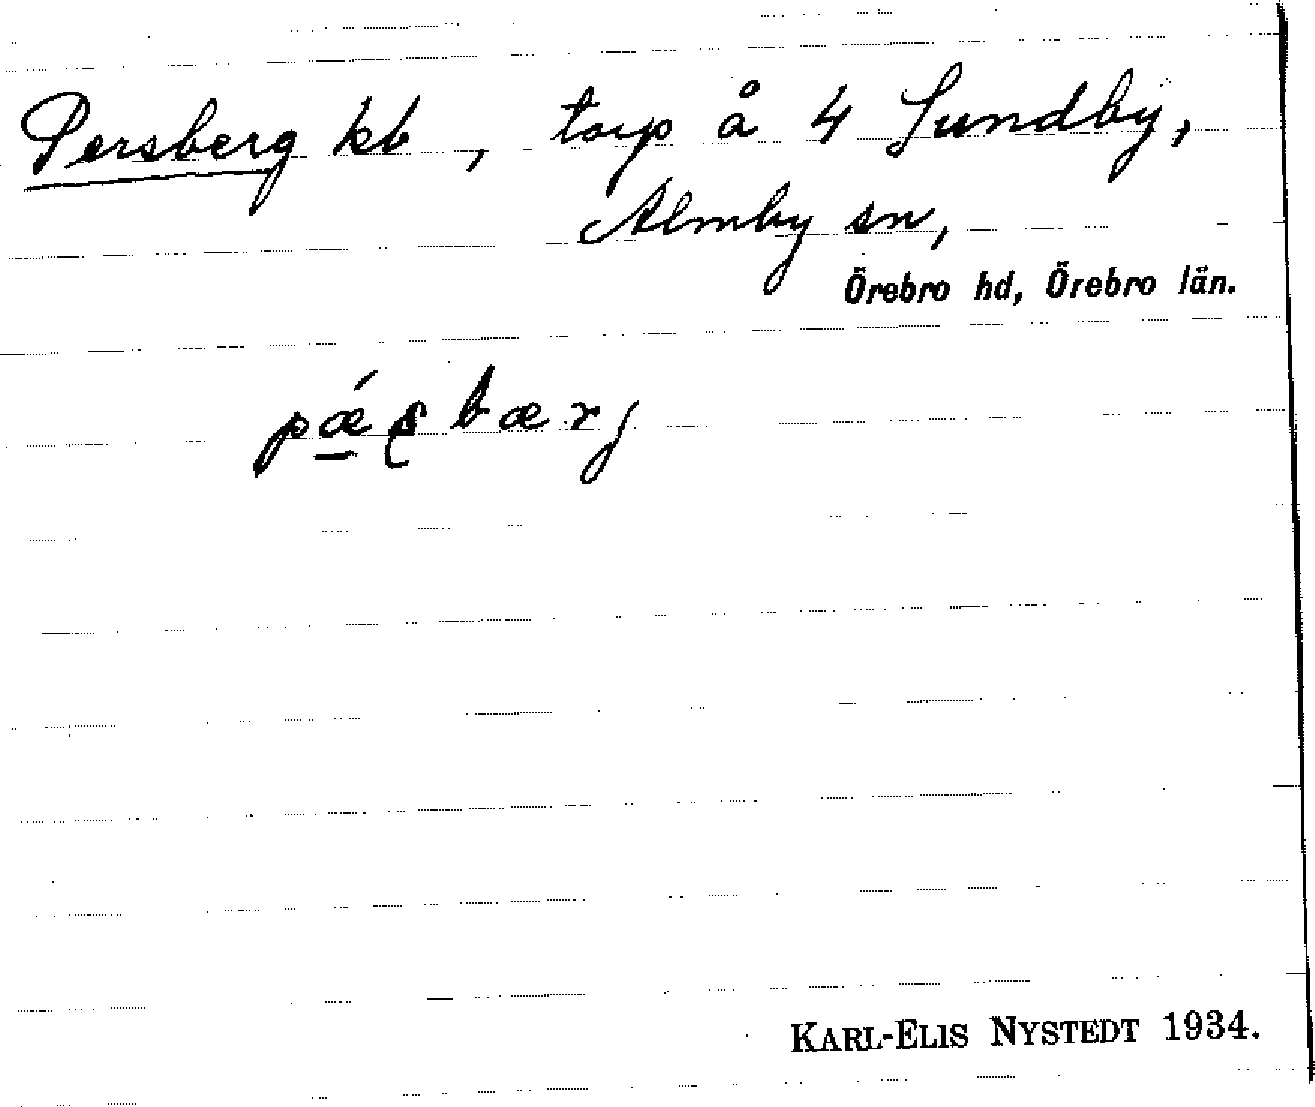 Persberg kb, torp å 4 Sundby,
Almby sn,
Örebro hd, Örebro län.
pǽ̱ʂbærj
KARL-ELIS NYSTEDT 1934.